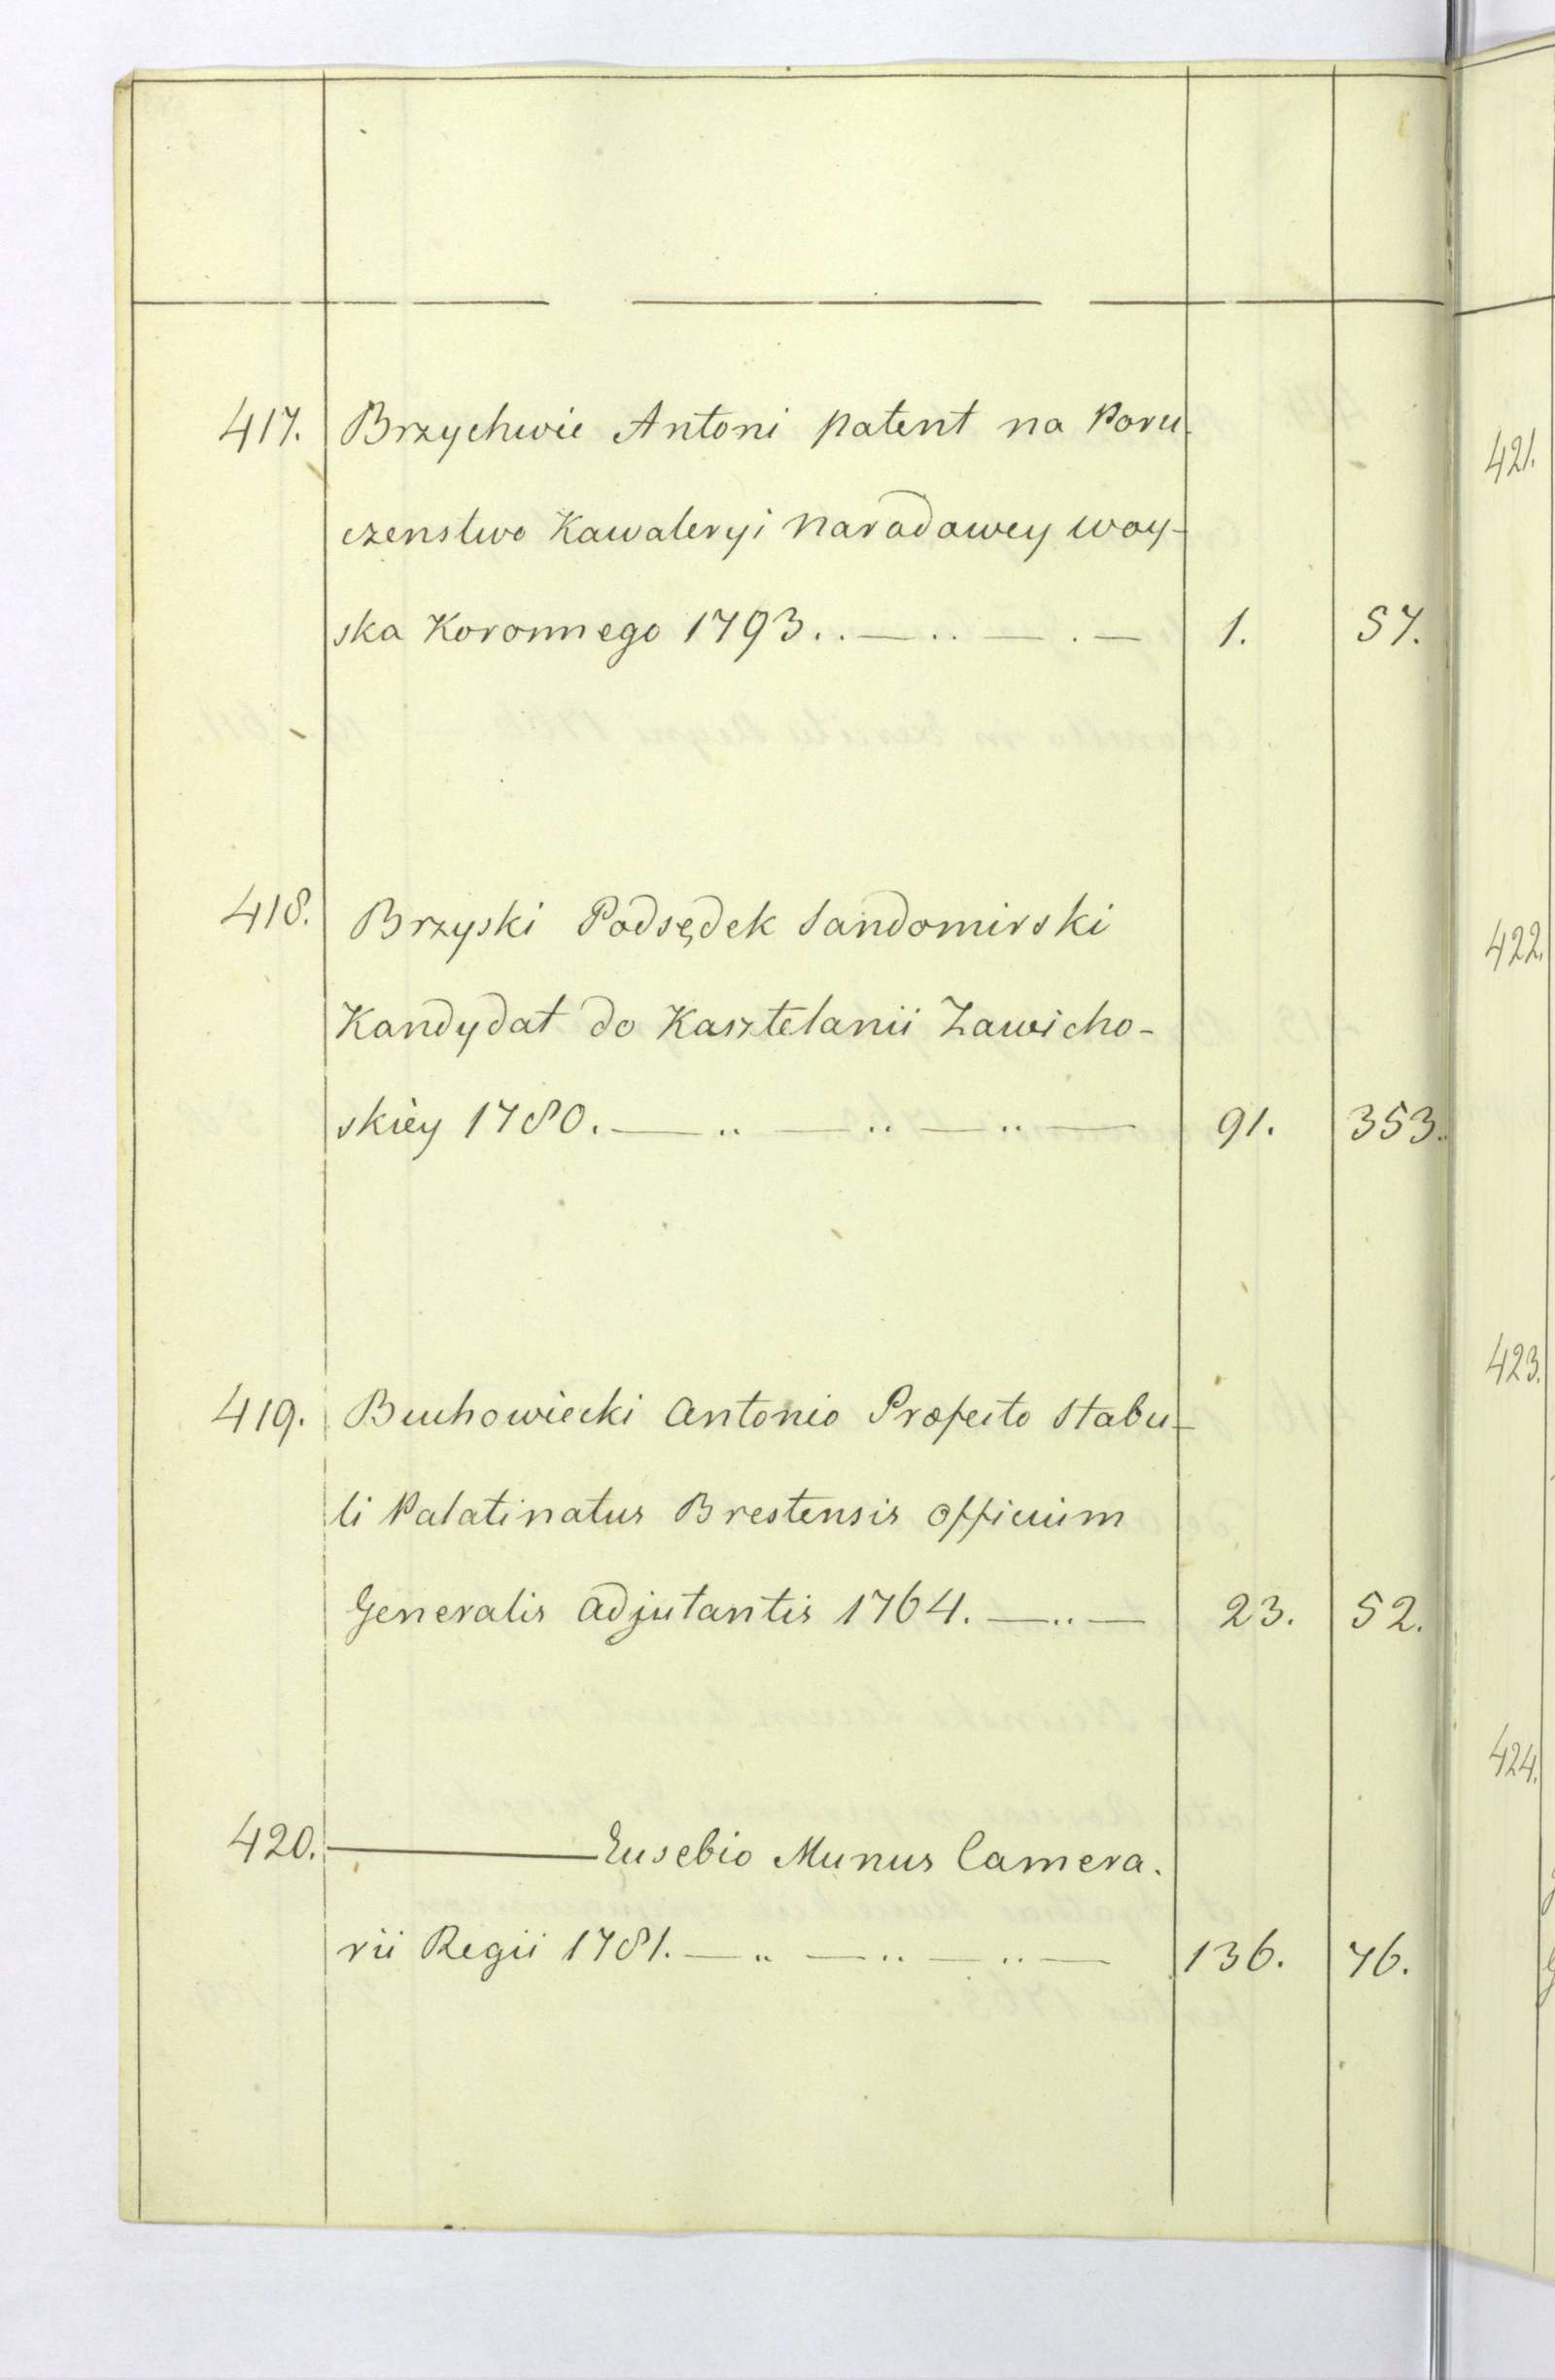 417. Brzychwie Antoni patent na Poru-
czenstwo Kawaleryi Narodowey woy-
ska Koronnego 1793. . — . . — . — 1. 57.
418. Brzyski Podsędek Sandomirski
Kandydat do Kasztelanii Zawicho-
skiey 1780. — .. — .. — .. — 91. 353.
419. Buchowiecki Antonio Præfecto Stabu-
li Palatinatus Brestensis officium
Generalis adjutantis 1764. — .. — 23. 52.
420. — Eusebio Munus Camera.
rii Regii 1781. — .. — .. — .. — 136. 76.
421.
422.
423.
424.